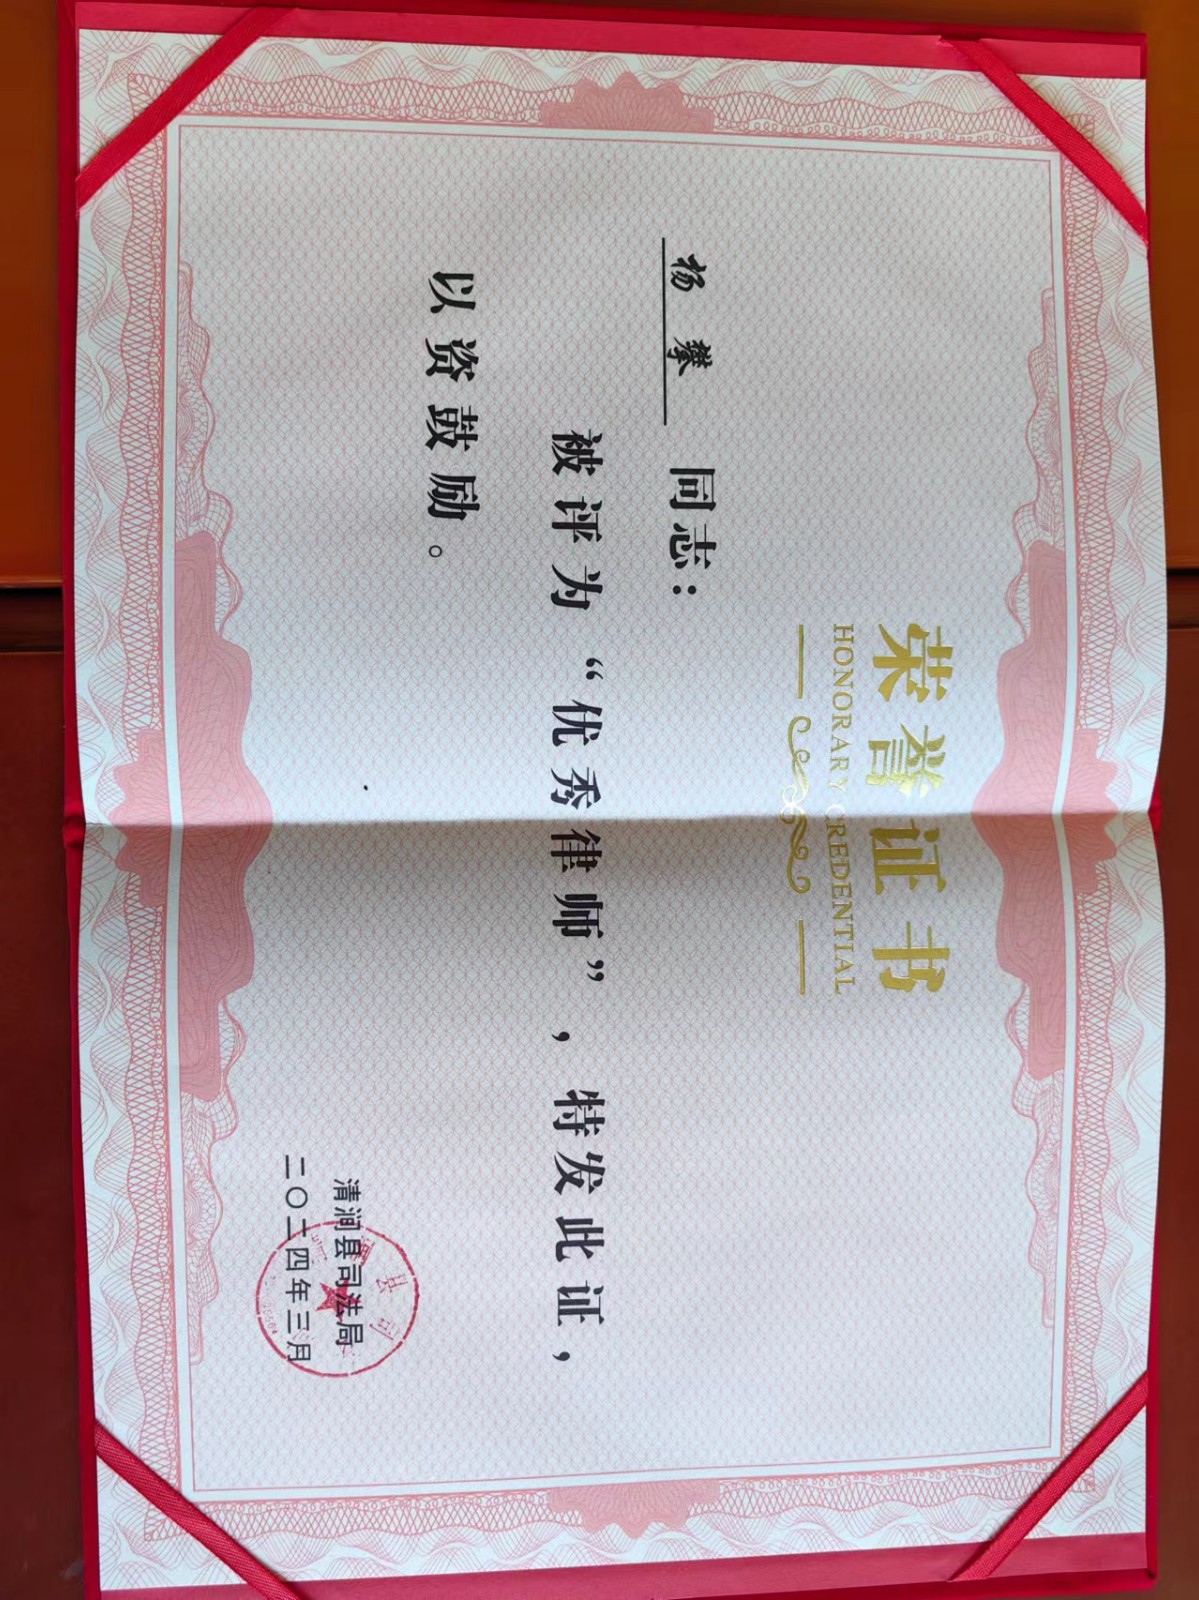 荣誉证书
HONORARY CREDENTIAL
杨攀 同志：
被评为“优秀律师”，特发此证，
以资鼓励。
清涧县司法局
二〇二四年三月